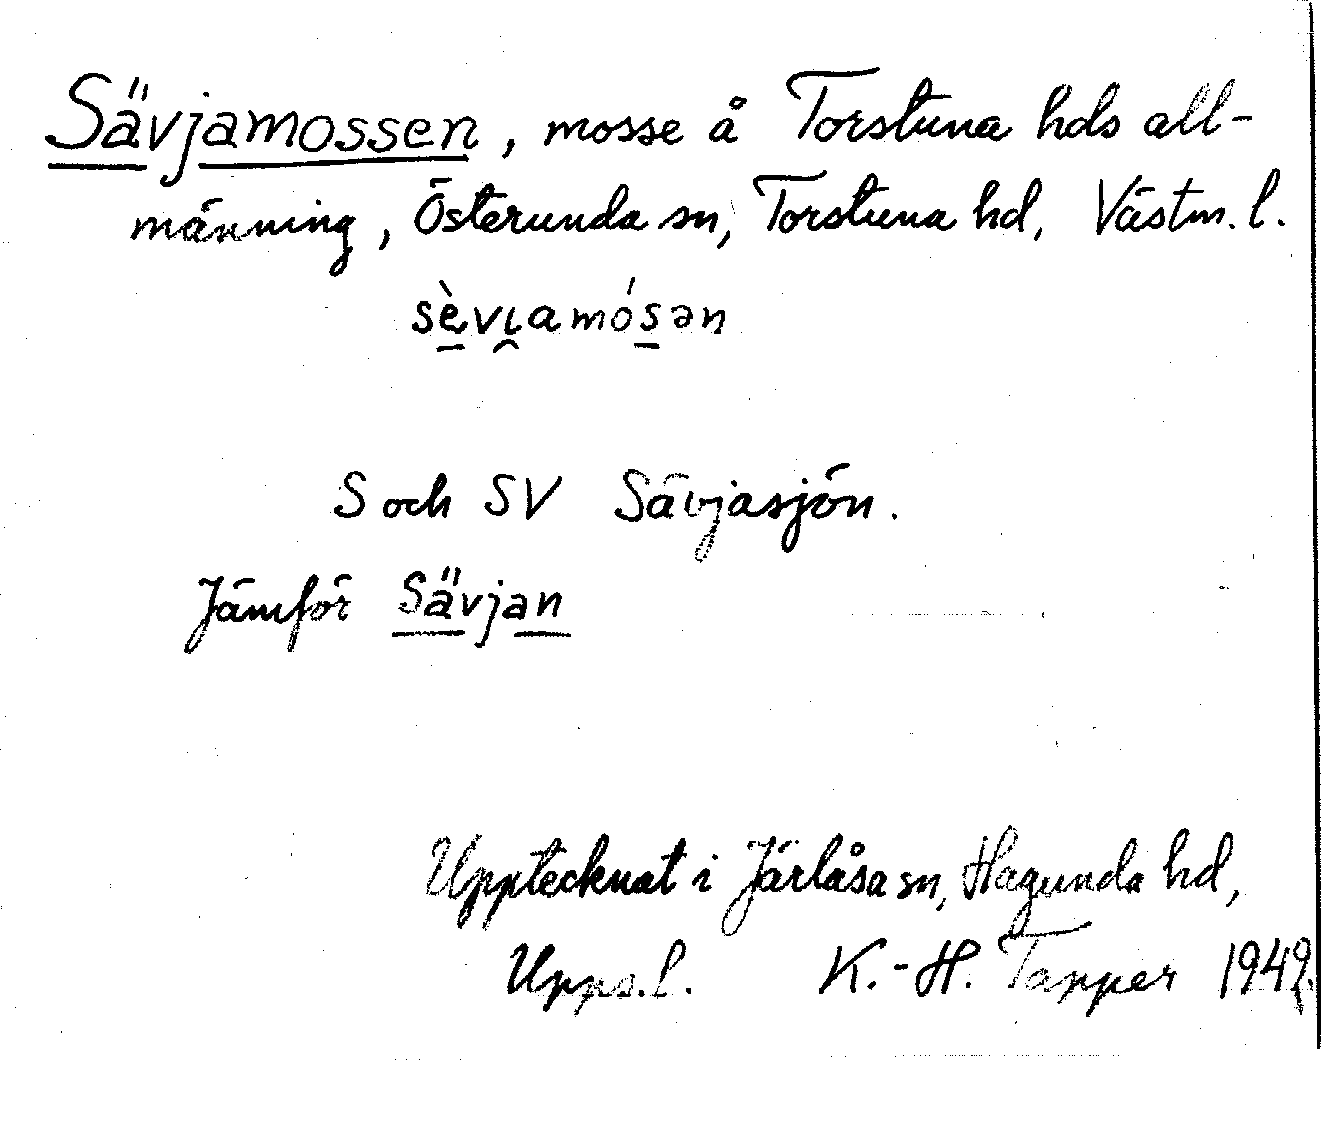 Sävjamossen, mosse å Torstuna hds all-
männing, Österunda sn, Torstuna hd, Västm. l.
sè̱vi̯amó̱s̱ən
S och SV Sävjasjön.
Jämför Sävjan
Upptecknat i Järlåsa sn, Hagunda hd,
Upps. l. K.-H. Tapper 1949.